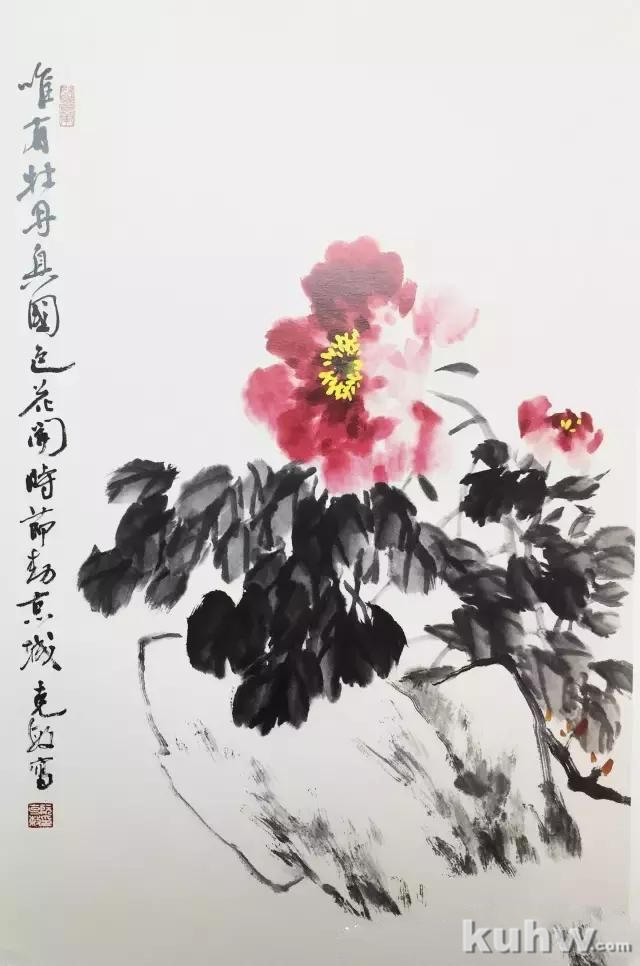 唯有牡丹真國色花開時節動京城克敏寫
kuhw.com